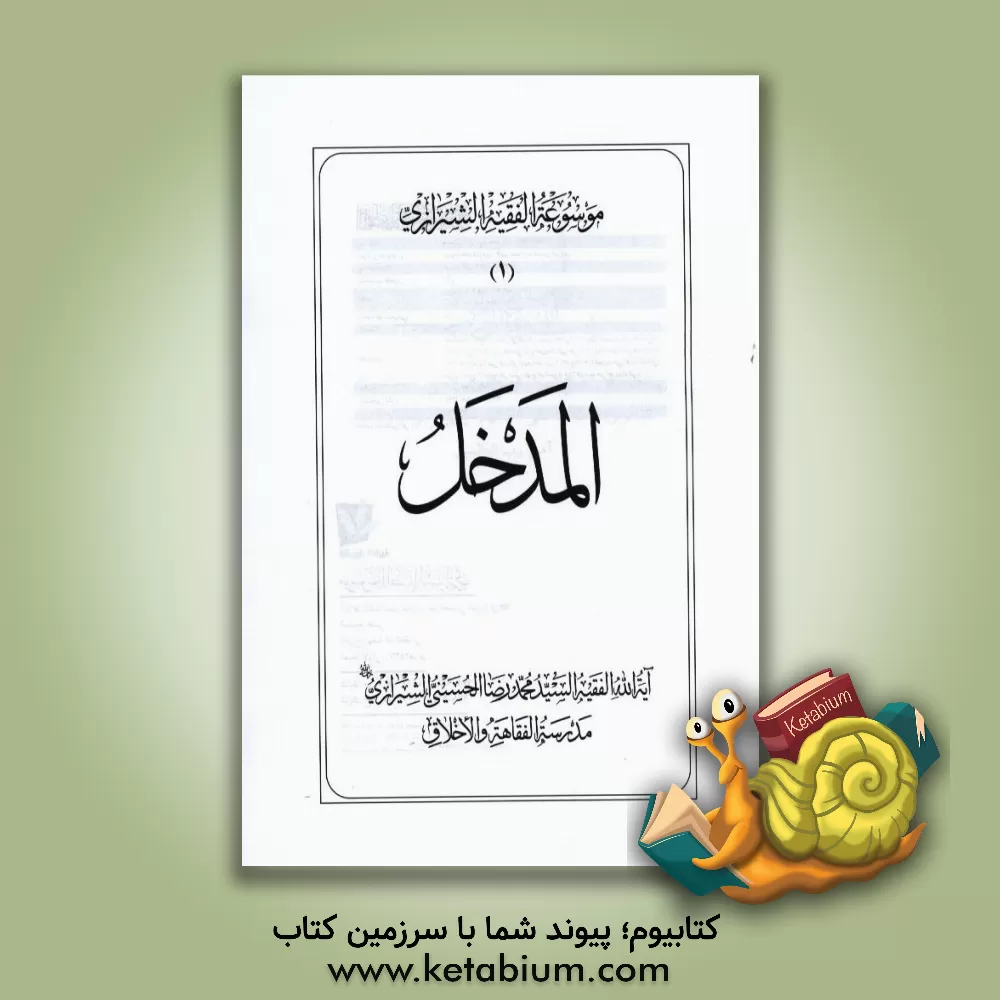 مَوْسُوعَةُ الْفَقِيهِ الشِّيرَازِيِّ
(١)
المَدْخَلُ
آيَةُ اللهِ الْفَقِيهِ السَّيِّدُ مُحَمَّد رِضَا الْحُسَيْنِيُّ الشِّيرَازِيُّ
مَدْرَسَةُ الْفَقَاهَةِ وَالْأَخْلَاقِ
Ketabium
کتابیوم؛ پیوند شما با سرزمین کتاب
www.ketabium.com